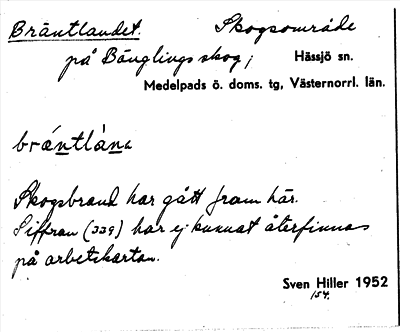 Bräntlandet. Skogsområde
på Bänglings skog, Hässjö sn.
Medelpads ö. doms. tg, Västernorrl. län.
bräntlàna
Skogsbrand har gått fram här.
Siffran (339) har ej kunnat återfinnas
på arbetskartan.
Sven Hiller 1952
154.